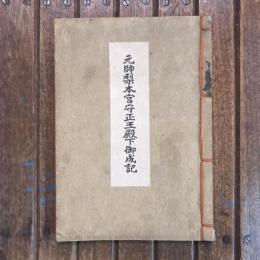 元帥梨本宮守正王殿下御成記